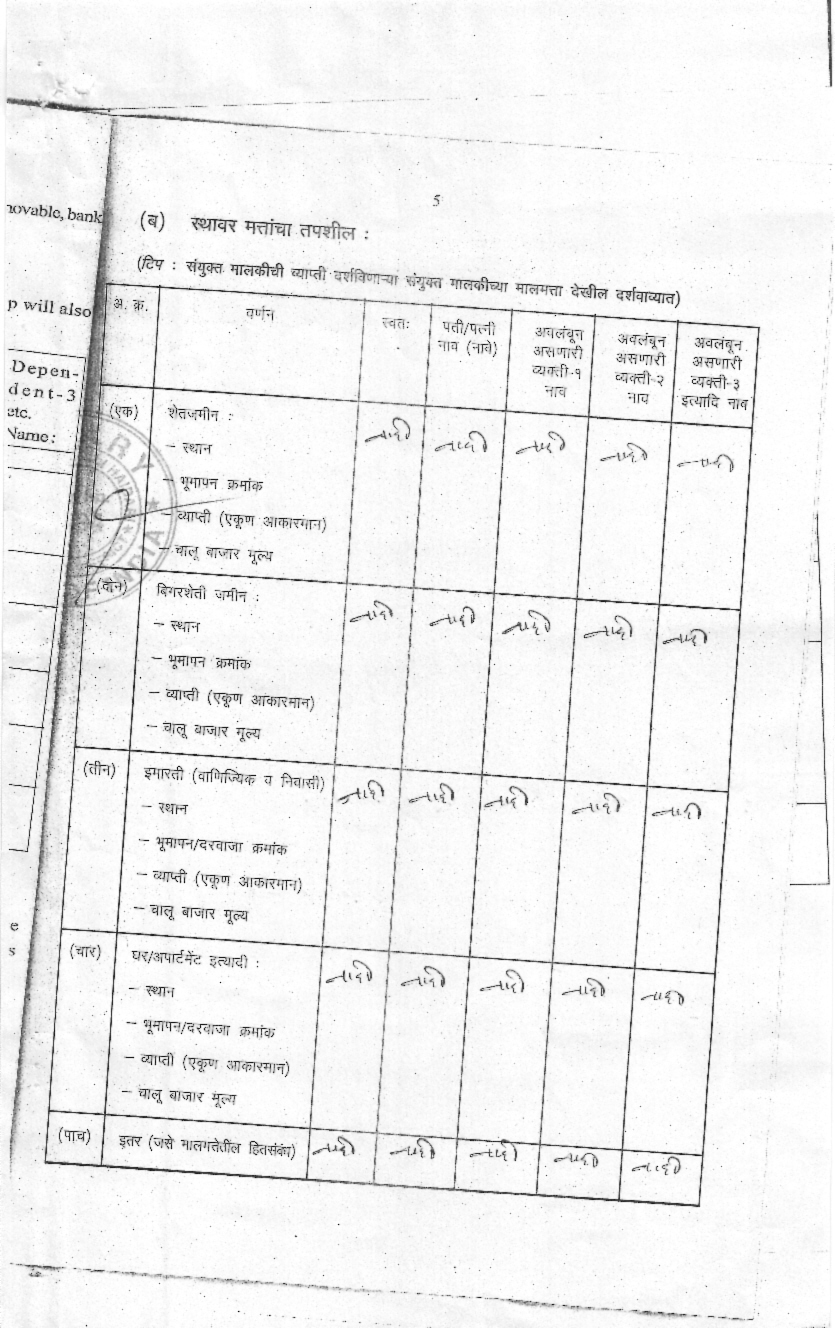 5
novable, bank
(ब) स्थावर मत्तांचा तपशील :
(टिप : संयुक्त मालकीची व्याप्ती दर्शविणाऱ्या संयुक्त मालकीच्या मालमत्ता देखील दर्शवाव्यात)
p will also
Depen-
dent-3
etc.
Name:
e
s
अ. क्र. वर्णन स्वतः पती/पत्नी नाव (नावे) अवलंबून असणारी व्यक्ती-१ नाव अवलंबून असणारी व्यक्ती-२ नाव अवलंबून असणारी व्यक्ती-३ इत्यादि नाव
(एक) शेतजमीन : नाही नाही नाही नाही नाही
– स्थान
– भूमापन क्रमांक
– व्याप्ती (एकूण आकारमान)
– चालू बाजार मूल्य
(दोन) बिगरशेती जमीन : नाही नाही नाही नाही नाही
– स्थान
– भूमापन क्रमांक
– व्याप्ती (एकूण आकारमान)
– चालू बाजार मूल्य
(तीन) इमारती (वाणिज्यिक व निवासी) नाही नाही नाही नाही नाही
– स्थान
– भूमापन/दरवाजा क्रमांक
– व्याप्ती (एकूण आकारमान)
– चालू बाजार मूल्य
(चार) घर/अपार्टमेंट इत्यादी : नाही नाही नाही नाही नाही
– स्थान
– भूमापन/दरवाजा क्रमांक
– व्याप्ती (एकूण आकारमान)
– चालू बाजार मूल्य
(पाच) इतर (जसे मालमत्तेतील हितसंबंध) नाही नाही नाही नाही नाही